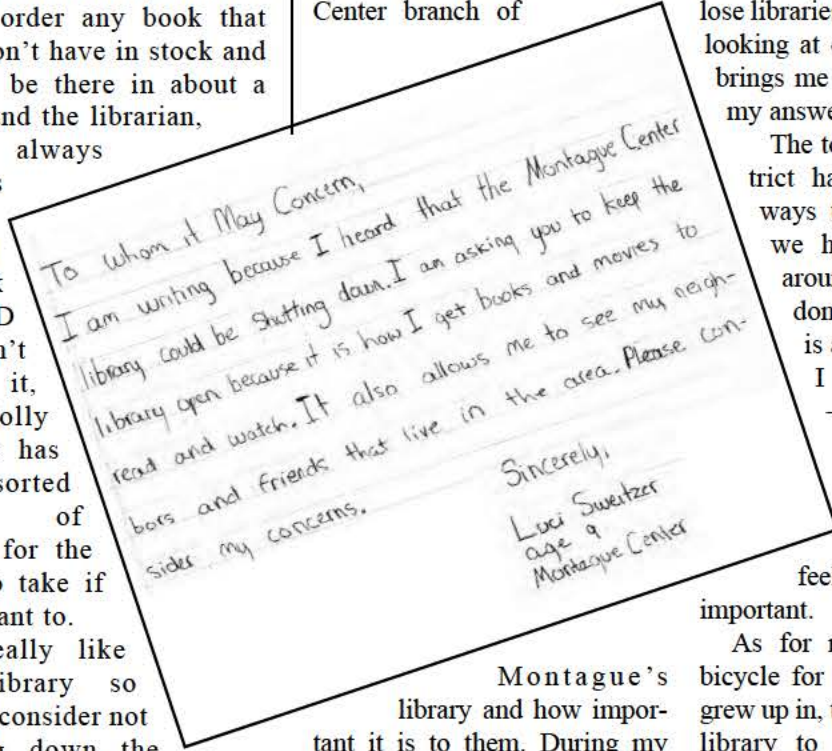 order any book that
on't have in stock and
be there in about a
nd the librarian,
always
n't
it,
olly
has
sorted
of
for the
take if
ant to.
eally like
ibrary so
consider not
down the
Center branch of
To whom it May Concern,
I am writing because I heard that the Montague Center
library could be shutting down. I am asking you to keep the
library open because it is how I get books and movies to
read and watch. It also allows me to see my neigh-
bors and friends that live in the area. Please con-
sider my concerns.
Sincerely,
Luci Sweitzer
age 9
Montague Center
Montague's
library and how impor-
tant it is to them. During my
lose librarie
looking at
brings me
my answe
The to
trict ha
ways
we h
arou
don
is
I
feel
important.
As for
bicycle for
grew up in,
library to